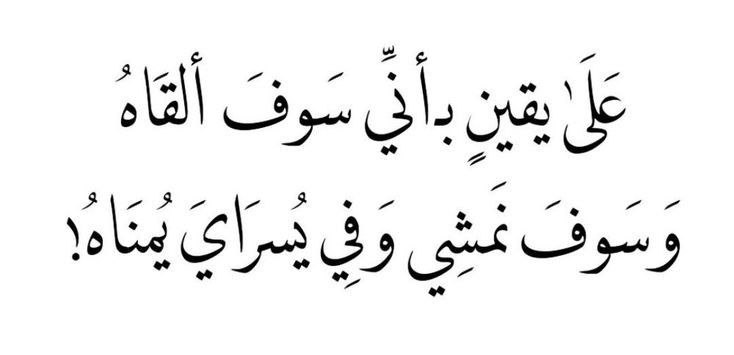 عَلَىٰ يقينٍ بـأنِّي سَوفَ ألقَاهُ
وَسَوفَ نَمشِي وَفِي يُسرَايَ يُمنَاهُ!